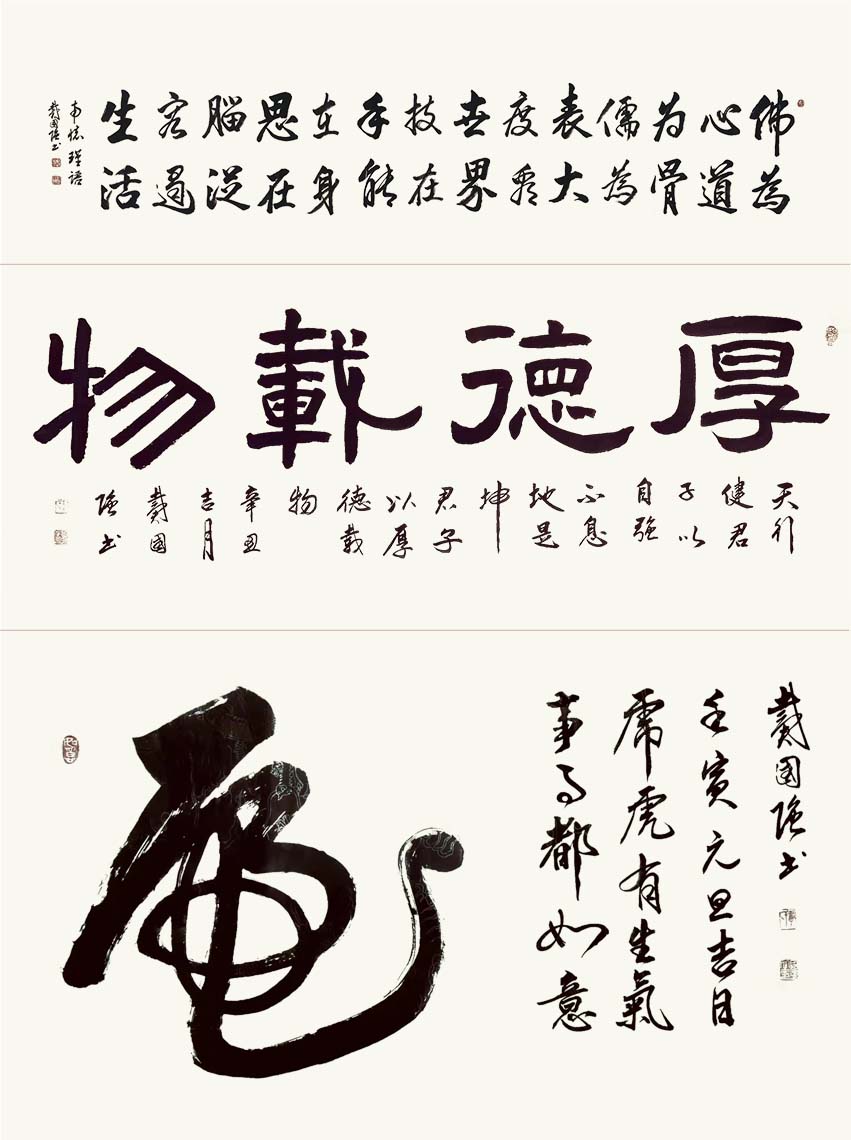 佛為
心道
为骨
儒為
表大
度看
世界
技在
手能
在身
思在
腦從
容過
生活
南懷瑾語
戴國强书
厚德載物
天行
健君
子以
自强
不息
地是
坤
君子
以厚
德載
物
辛丑
吉月
戴國
强书
虎
事事都如意
虎虎有生氣
壬寅元旦吉日
戴國强书